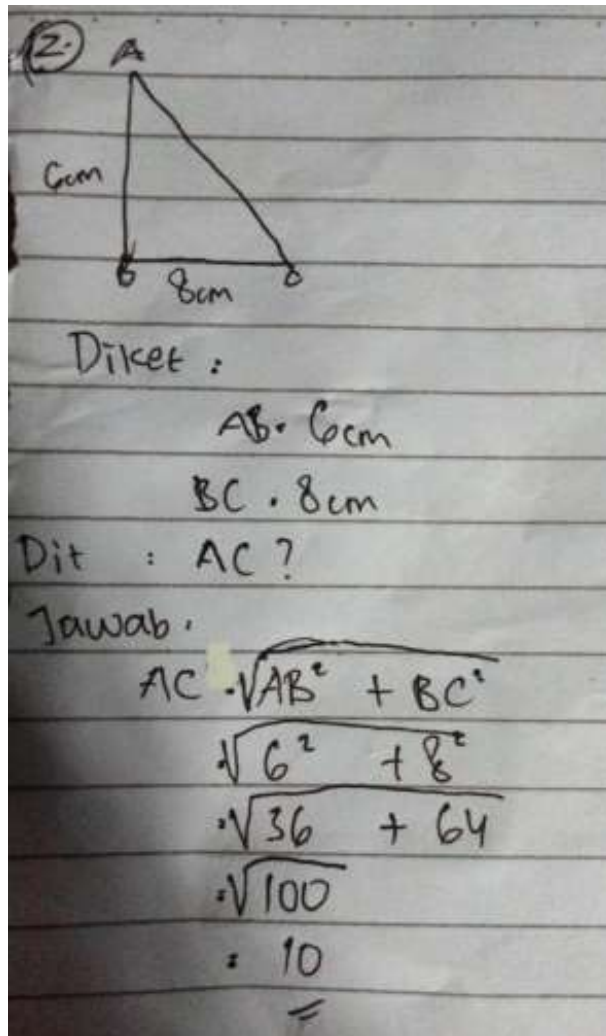 2.
A
6cm
B
8cm
C
Diket :
AB = 6cm
BC = 8cm
Dit : AC ?
Jawab.
AC = √AB² + BC²
= √6² + 8²
= √36 + 64
= √100
= 10